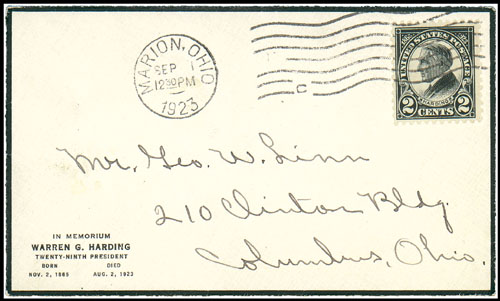 MARION, OHIO
SEP 1
12 30 PM
1923
C
UNITED STATES POSTAGE
HARDING
2 CENTS 2
Mr. Geo. W. Linn
210 Clinton Bldg
Columbus, Ohio.
IN MEMORIUM
WARREN G. HARDING
TWENTY-NINTH PRESIDENT
BORN DIED
NOV. 2, 1865 AUG. 2, 1923